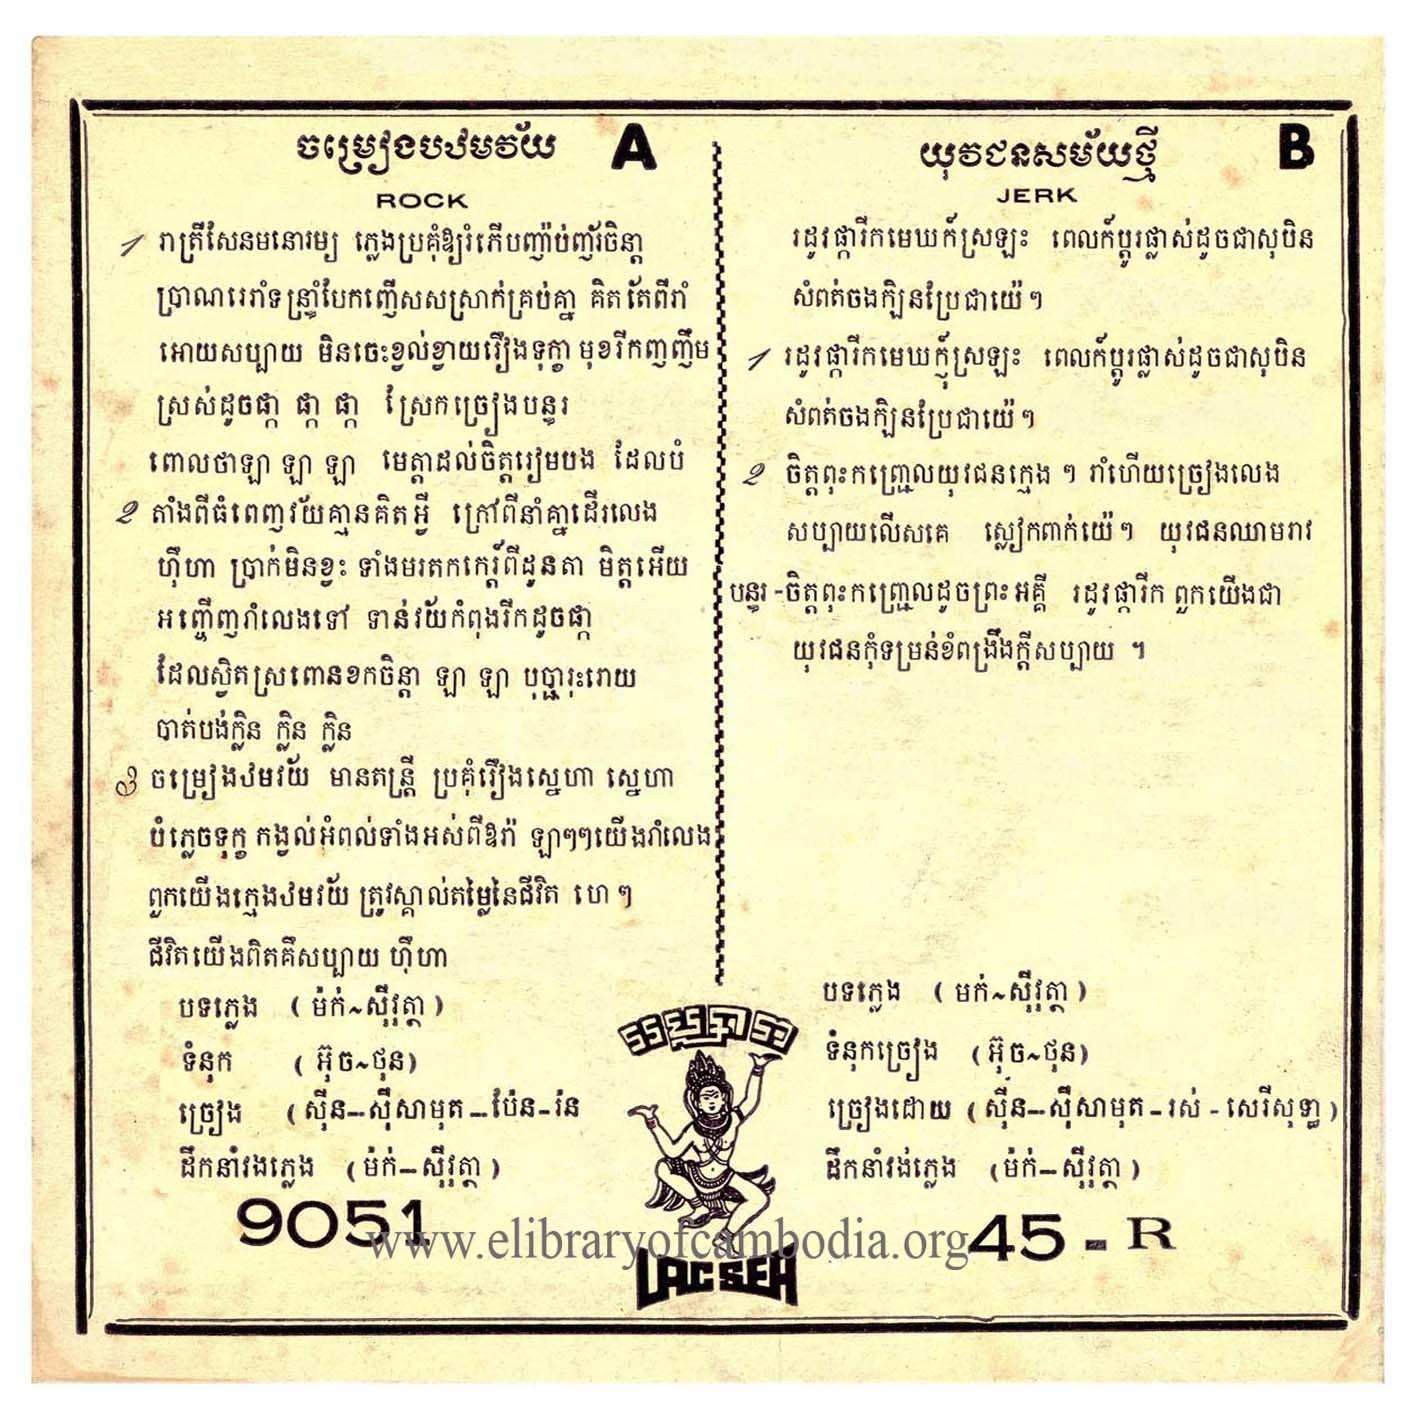 ចម្រៀងបឋមវ័យ A
ROCK
1 រាត្រីសែនមនោរម្យ ភ្លេងប្រគុំឱ្យរំភើបញ៉ាប់ញ័រចិន្តា
ប្រាណរេរាំទន្ទ្រាំបែកញើសសស្រាក់គ្រប់គ្នា គិតតែពីរាំ
អោយសប្បាយ មិនចេះខ្វល់ខ្វាយរឿងទុក្ខា មុខរីកញញឹម
ស្រស់ដូចផ្កា ផ្កា ផ្កា ស្រែកច្រៀងបន្ទរ
ពោលថាឡា ឡា ឡា មេត្តាដល់ចិត្តរៀមបង ដែលបំ
2 តាំងពីធំពេញវ័យគ្មានគិតអ្វី ក្រៅពីនាំគ្នាដើរលេង
ហ៊ឺហា ប្រាក់មិនខ្វះ ទាំងមរតកកេរ្ត៍ពីដូនតា មិត្តអើយ
អញ្ចើញរាំលេងទៅ ទាន់វ័យកំពុងរីកដូចផ្កា
ដែលស្វិតស្រពោនខកចិន្តា ឡា ឡា បុប្ផារុះរោយ
បាត់បង់ក្លិន ក្លិន ក្លិន
3 ចម្រៀងឋមវ័យ មានតន្ត្រី ប្រគុំរឿងស្នេហា ស្នេហា
បំភ្លេចទុក្ខ កង្វល់អំពល់ទាំងអស់ពីឱរ៉ា ឡាៗៗយើងរាំលេង
ពួកយើងក្មេងឋមវ័យ ត្រូវស្គាល់តម្លៃនៃជីវិត ហេ ៗ
ជីវិតយើងពិតគឺសប្បាយ ហ៊ឺហា
បទភ្លេង ( ម៉ក់~ស៊ីវុត្ថា )
ទំនុក ( អ៊ុច~ថុន)
ច្រៀង ( ស៊ីន--ស៊ីសាមុត--ប៉ែន-រ៉ន
ដឹកនាំវង់ភ្លេង ( ម៉ក់--ស៊ីវុត្ថា )
9051
យុវជនសម័យថ្មី B
JERK
រដូវផ្ការីកមេឃក៏ស្រឡះ ពេលក៏ប្ដូរផ្លាស់ដូចជាសុបិន
សំពត់ចងក្បិនប្រែជាយ៉េ ៗ
1 រដូវផ្ការីកមេឃក៏ស្រឡះ ពេលក៏ប្ដូរផ្លាស់ដូចជាសុបិន
សំពត់ចងក្បិនប្រែជាយ៉េ ៗ
2 ចិត្តពុះកញ្ជ្រោលយុវជនក្មេង ៗ រាំហើយច្រៀងលេង
សប្បាយលើសគេ ស្លៀកពាក់យ៉េ ៗ យុវជនឈាមរាវ
បន្ទរ - ចិត្តពុះកញ្ជ្រោលដូចព្រះអគ្គី រដូវផ្ការីក ពួកយើងជា
យុវជនកុំទម្រន់ខំពង្រឹងក្ដីសប្បាយ ។
បទភ្លេង ( មក់~ស៊ីវុត្ថា )
ទំនុកច្រៀង ( អ៊ុច~ថុន)
ច្រៀងដោយ ( ស៊ីន--ស៊ីសាមុត--រស់ - សេរីសុទ្ធា )
ដឹកនាំវង់ភ្លេង ( ម៉ក់--ស៊ីវុត្ថា )
45 - R
LAC SEA
www.elibraryofcambodia.org